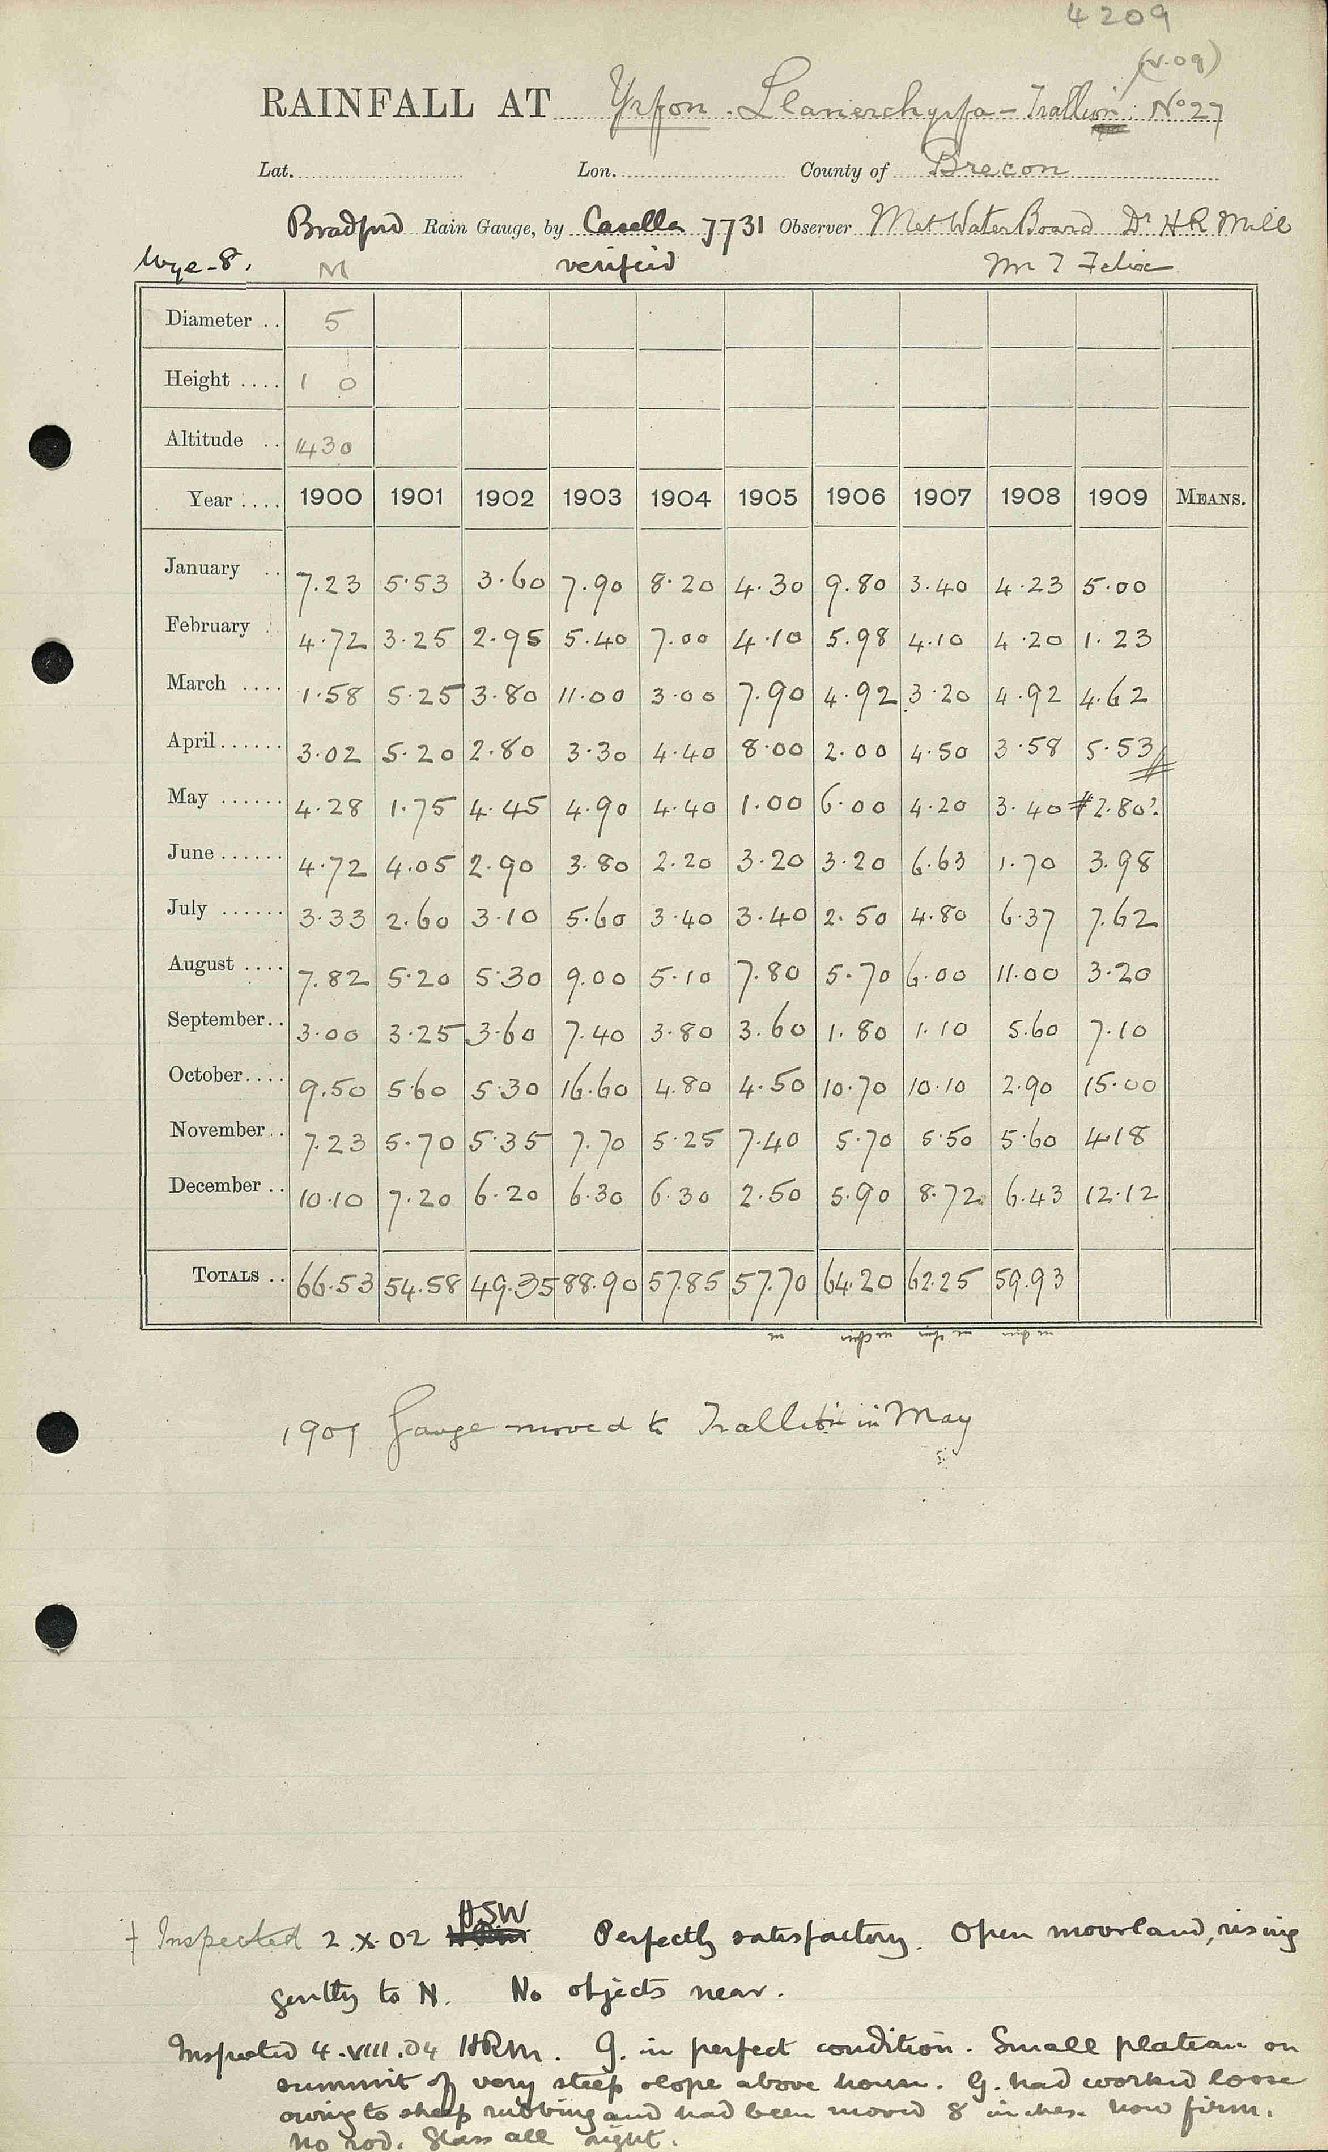 4209
(v.09)
RAINFALL AT Yrfon. Llanerchyrfa - Trallion. No 27
Lat. Lon. County of Brecon
Bradford Rain Gauge, by Casella 7731 Observer Met Water Board Dr H R Mill
Wye-8. M verified Mr T Felix
Diameter .. 5
Height .... 1 0
Altitude .. 1430
Year .... 1900 1901 1902 1903 1904 1905 1906 1907 1908 1909 MEANS.
January .. 7.23 5.53 3.60 7.90 8.20 4.30 9.80 3.40 4.23 5.00
February . 4.72 3.25 2.95 5.40 7.00 4.10 5.98 4.10 4.20 1.23
March .... 1.58 5.25 3.80 11.00 3.00 7.90 4.92 3.20 4.92 4.62
April ...... 3.02 5.20 2.80 3.30 4.40 8.00 2.00 4.50 3.58 5.53
May ...... 4.28 1.75 4.45 4.90 4.40 1.00 6.00 4.20 3.40 #2.80?
June ...... 4.72 4.05 2.90 3.80 2.20 3.20 3.20 6.63 1.70 3.98
July ...... 3.33 2.60 3.10 5.60 3.40 3.40 2.50 4.80 6.37 7.62
August .... 7.82 5.20 5.30 9.00 5.10 7.80 5.70 6.00 11.00 3.20
September.. 3.00 3.25 3.60 7.40 3.80 3.60 1.80 1.10 5.60 7.10
October.... 9.50 5.60 5.30 16.60 4.80 4.50 10.70 10.10 2.90 15.00
November.. 7.23 5.70 5.35 7.70 5.25 7.40 5.70 5.50 5.60 4.18
December .. 10.10 7.20 6.20 6.30 6.30 2.50 5.90 8.72 6.43 12.12
TOTALS .. 66.53 54.58 49.35 88.90 57.85 57.70 64.20 62.25 59.93
1909 Gauge moved to Trallion in May
‡ Inspected 2.X.02 HSW Perfectly satisfactory. Open moorland, rising
gently to N. No objects near.
Inspected 4.VIII.04 HRM. G. in perfect condition. Small plateau on
summit of very steep slope above house. G. had worked loose
owing to sheep rubbing and had been moved 8 inches. Now firm.
No rod. Glass all right.